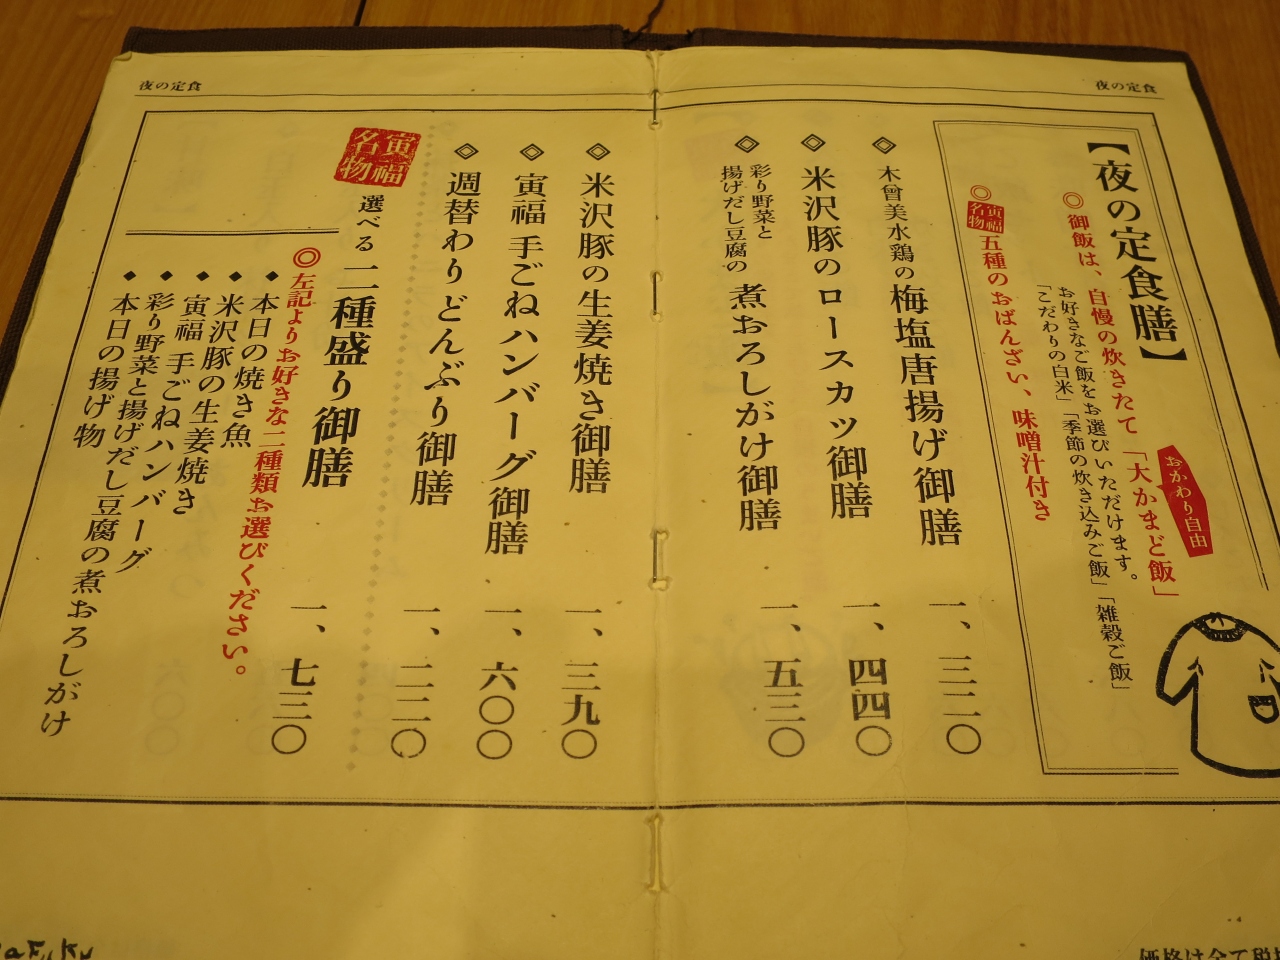 夜の定食
【夜の定食膳】
おかわり自由
◎御飯は、自慢の炊きたて「大かまど飯」
お好きなご飯をお選びいただけます。
「こだわりの白米」「季節の炊き込みご飯」「雑穀ご飯」
◎寅福名物 五種のおばんざい、味噌汁付き
木曾美水鶏の梅塩唐揚げ御膳 一、三二〇
米沢豚のロースカツ御膳 一、四四〇
彩り野菜と
揚げだし豆腐の 煮おろしがけ御膳 一、五三〇
夜の定食
米沢豚の生姜焼き御膳 一、三九〇
寅福 手ごねハンバーグ御膳 一、六〇〇
週替わりどんぶり御膳 一、二二〇
寅福名物
選べる 二種盛り御膳 一、七三〇
◎左記よりお好きな二種類お選びください。
◆本日の焼き魚
◆米沢豚の生姜焼き
◆寅福 手ごねハンバーグ
◆彩り野菜と揚げだし豆腐の煮おろしがけ
◆本日の揚げ物
価格は全て税
afuku